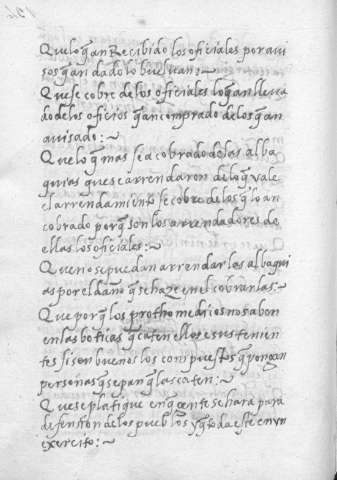 Que lo q̃ an Recibido los oficiales por avi
sos q̃ an dado lo buelvan:~
Que se cobre de los oficiales lo q̃ an lleva
do de los oficios q̃ an comprado de los q̃ an
avisado:~
Que lo q̃ mas se a cobrado de las alba
quias que se arrendaron de lo q̃ vale
el arrendamiento se cobre de los q̃ lo an
cobrado porq̃ son los arrendadores de
ellas los oficiales:~
Que no se puedan arrendar las albaqui
as por el daño q̃ se haze en el cobrarlas:~
Que porq̃ los prothomedicos no saben
en las boticas q̃ caten ellos e sus tenien
tes si son buenos los conpuestos q̃ pongan
personas q̃ sepan q̃ las caten:~
Que se platique en q̃ gente se hara para
defension de los pueblos y q̃ toda este en un
exercito:~